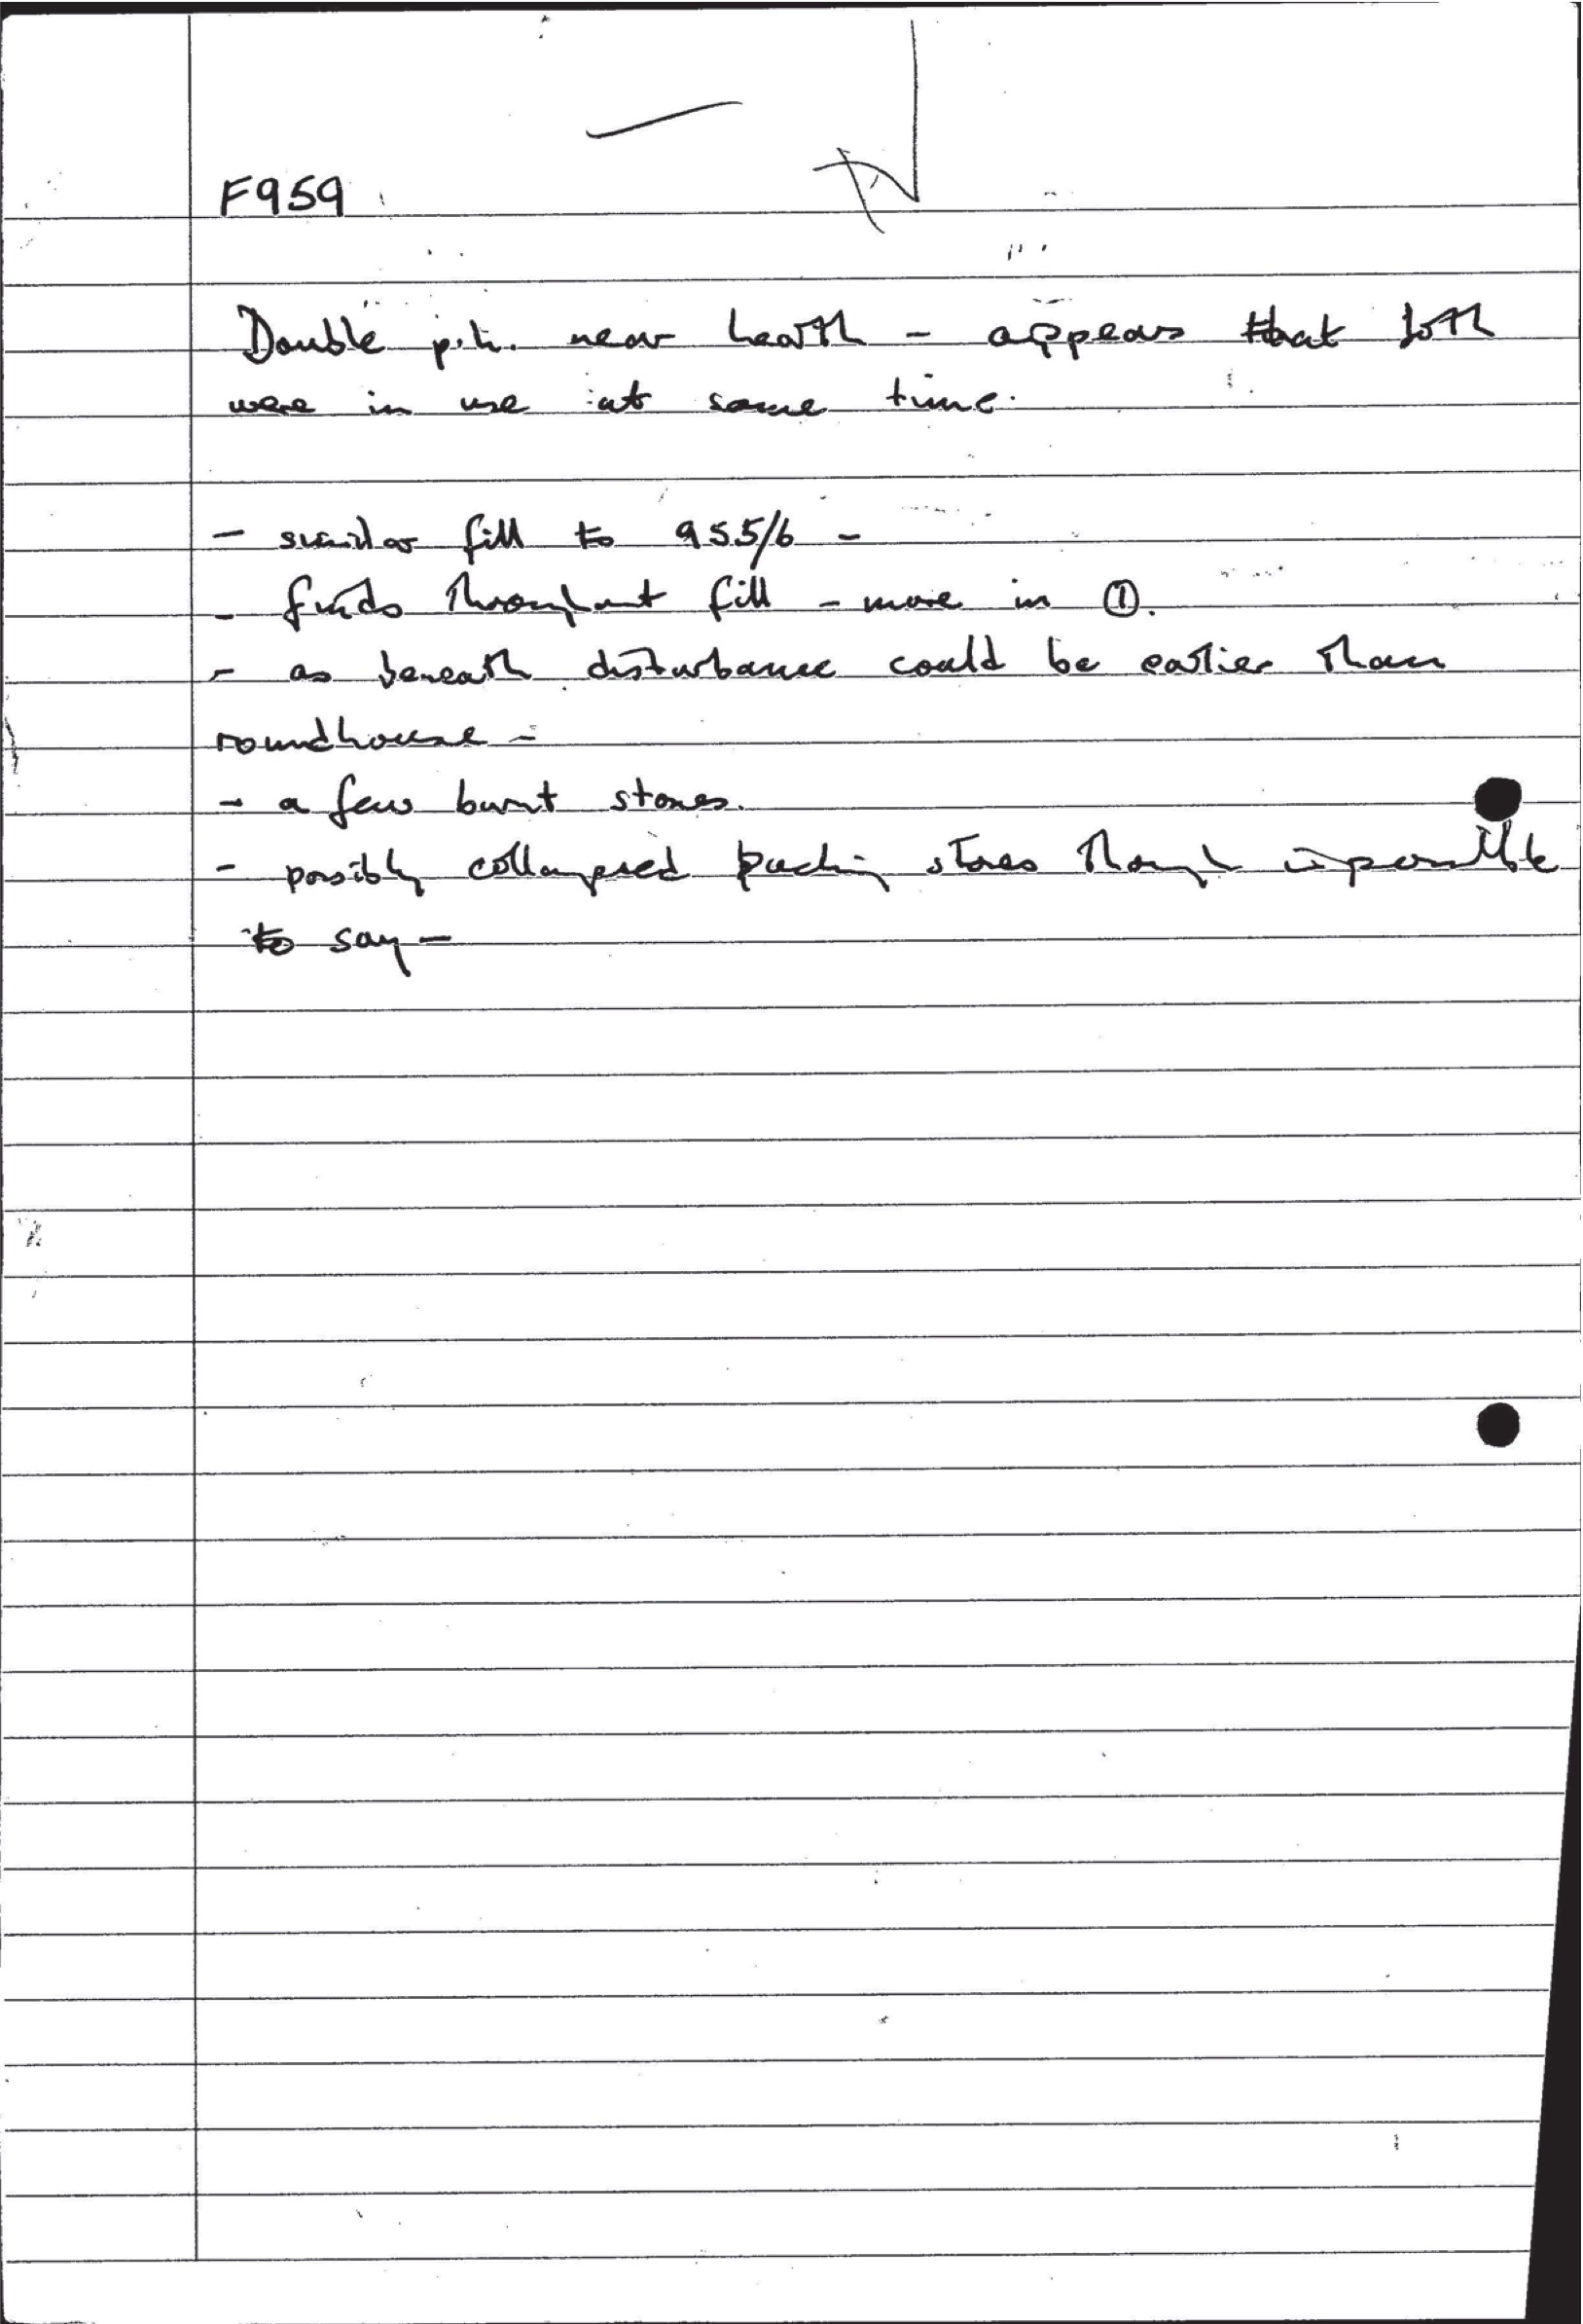 F959
Double p.h. near hearth - appears that both
were in use at same time.
- similar fill to 955/6 -
- finds throughout fill - more in ①.
- as beneath disturbance could be earlier than
roundhouse -
- a few burnt stones.
- possibly collapsed packing stones though impossible
to say -